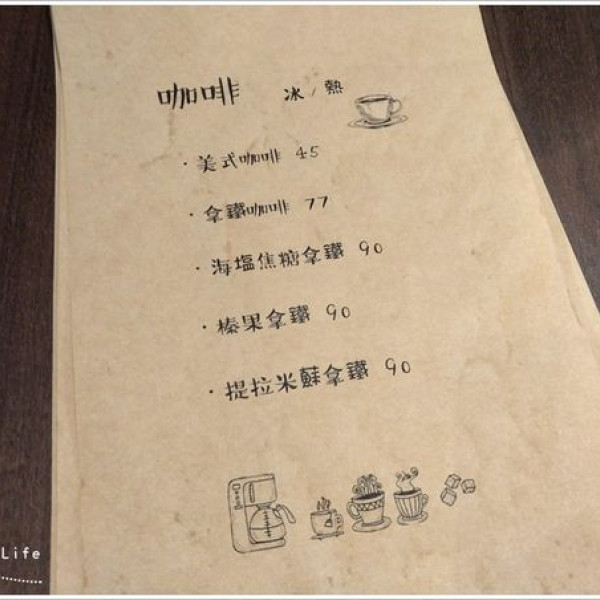 咖啡 冰/熱
・美式咖啡 45
・拿鐵咖啡 77
・海塩焦糖拿鐵 90
・榛果拿鐵 90
・提拉米蘇拿鐵 90
Life